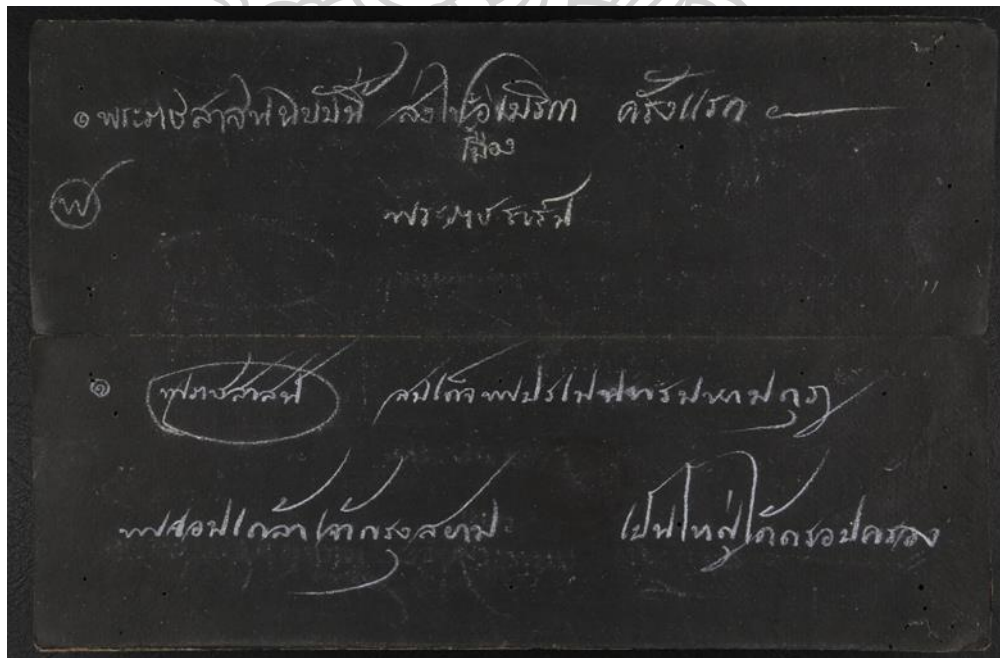 ๑ พระราชสาสนฉบับนี้ ส่งไปอเมริกา ครั้งแรก
เมือง
พระราชสาสน์ สมเด็จพระปรเมนทรมหามกุฎ
พระจอมเกล้าเจ้ากรุงสยาม เปนใหญ่ได้ครอบครอง